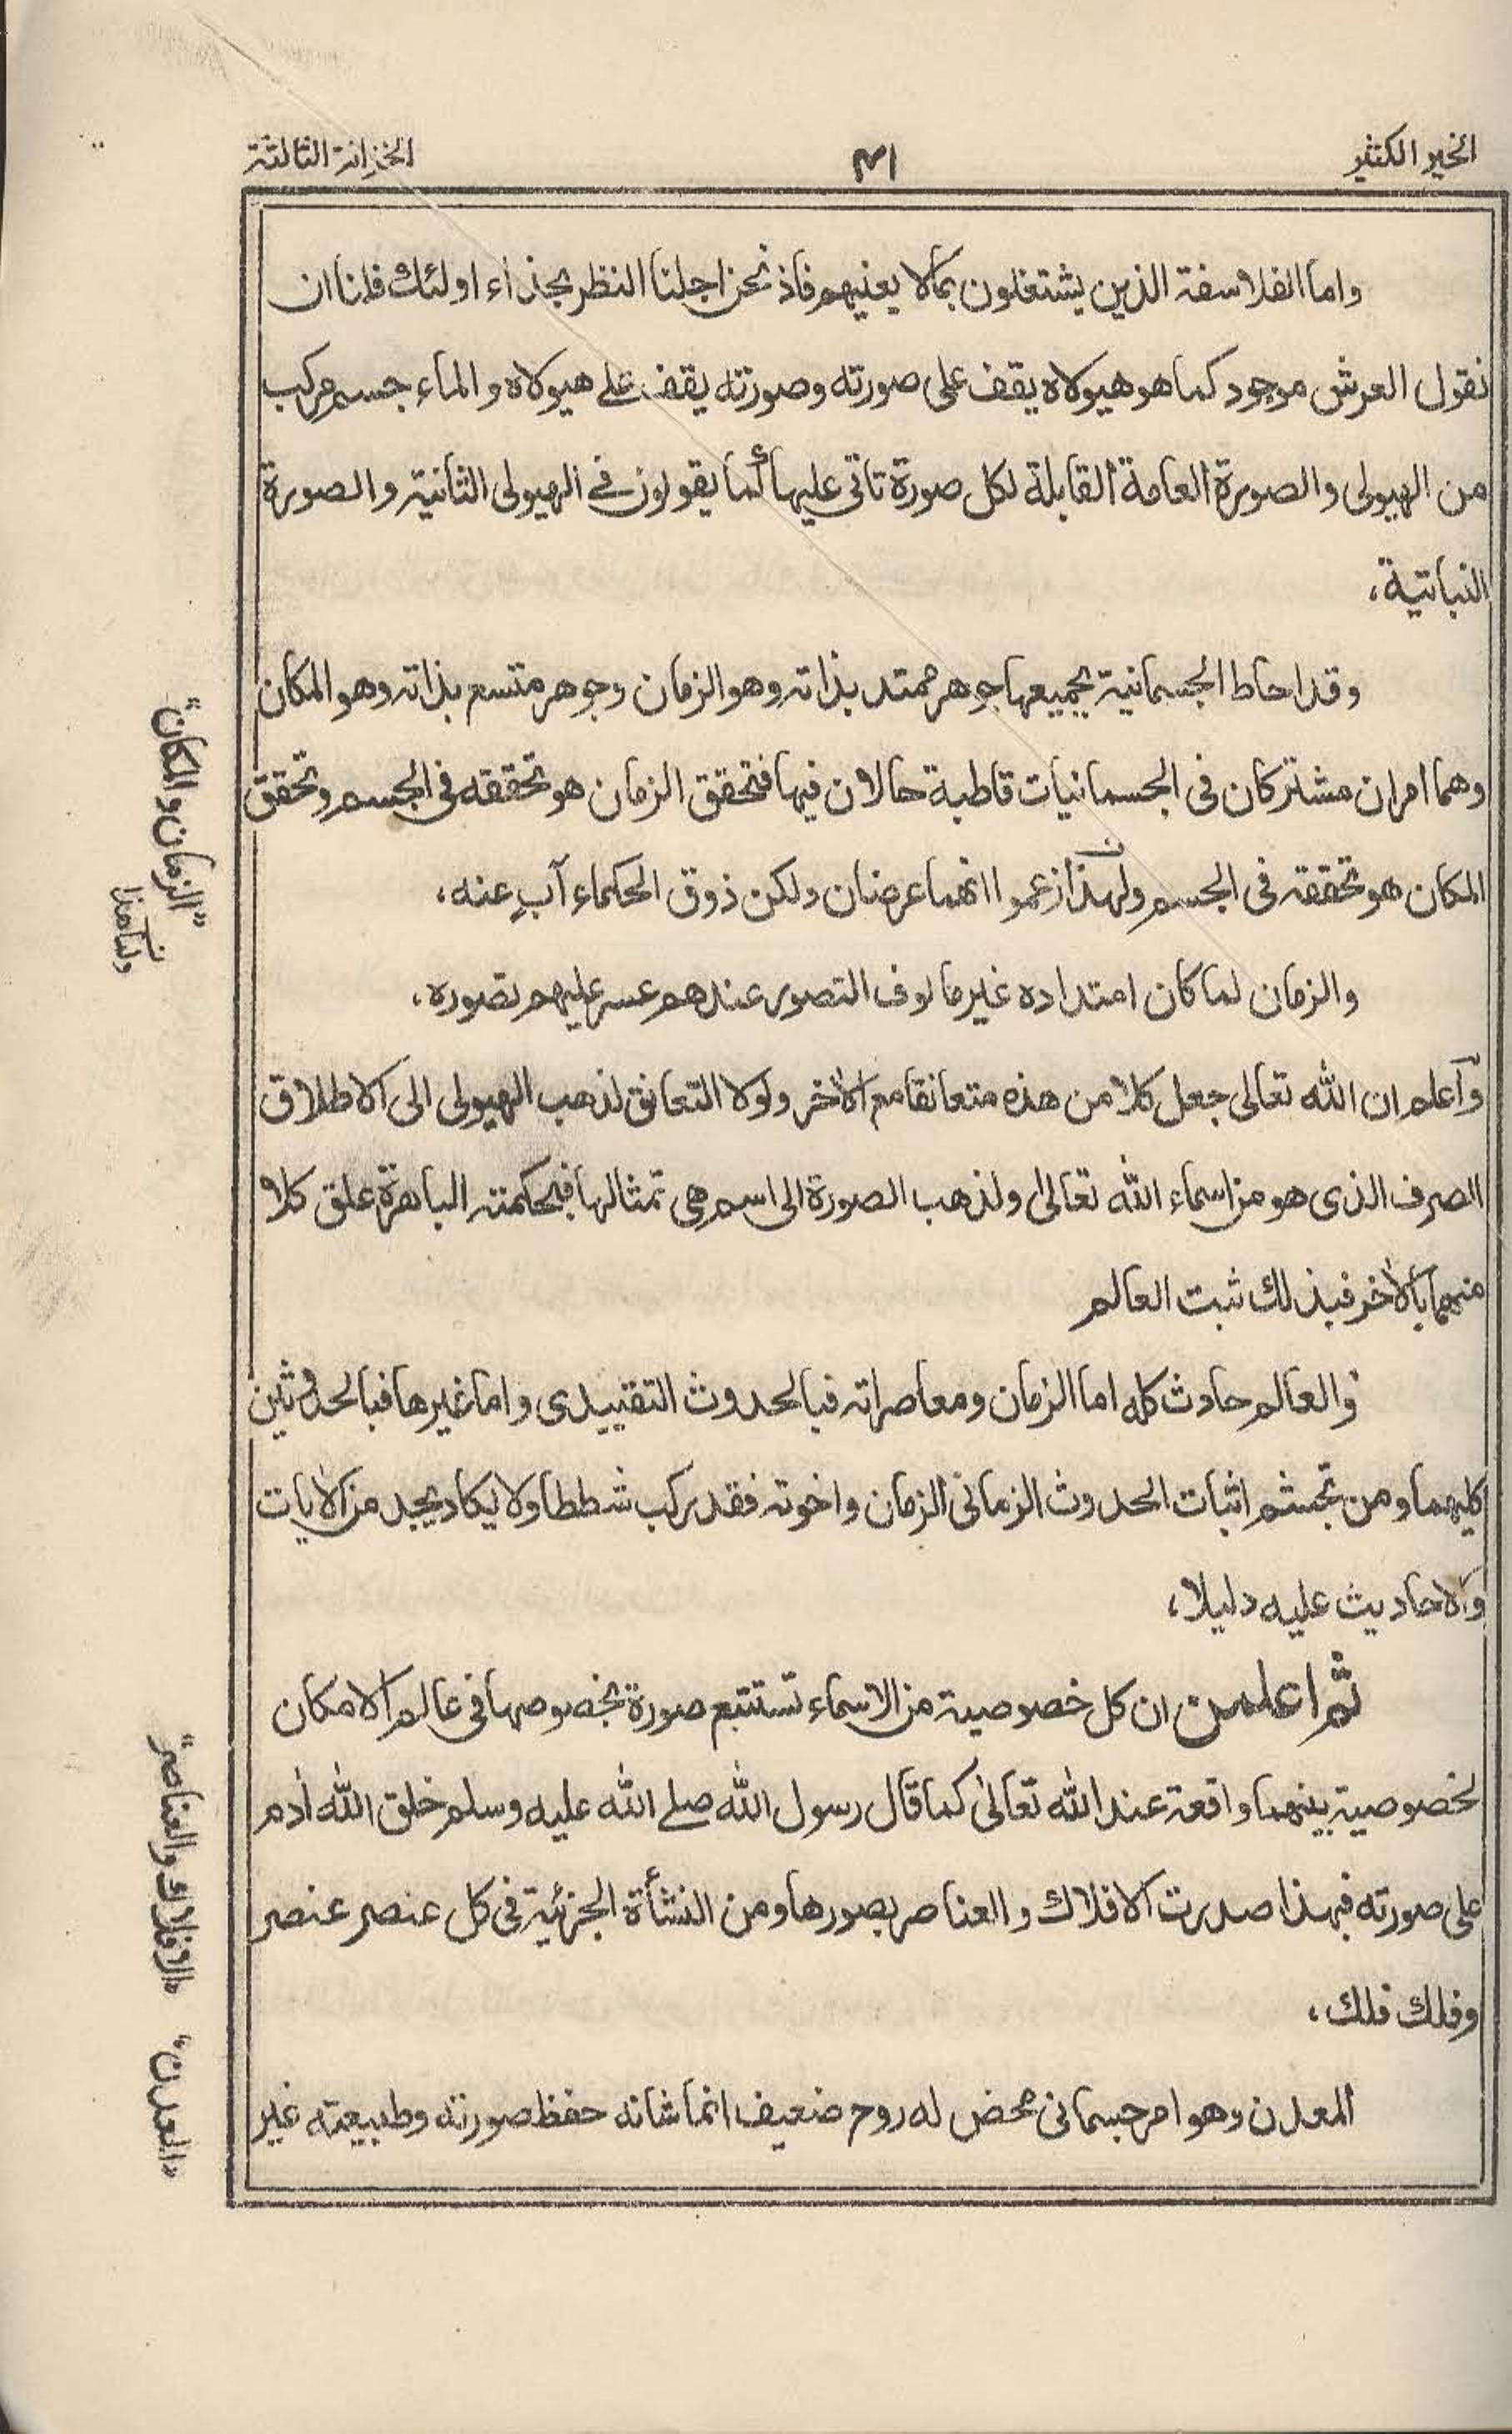 الخير الكثير
٣١
الخزانة الثالثة
واما الفلاسفة الذين يشتغلون بمالا يعنيهم فاذ نحن اجلنا النظر بحذاء اولئك فلنا ان
نقول العرش موجود كما هو هيولاه يقف على صورته وصورته يقف على هيولاه والماء جسم مركب
من الهيولى والصورة العامة القابلة لكل صورة تاتي عليها كما يقولون في الهيولى الثانية والصورة
النباتية،
وقد احاط الجسمانية بجميعها جوهر ممتد بذاته وهو الزمان وجوهر متسع بذاته وهو المكان
وهما امران مشتركان فى الجسمانيات قاطبة حالان فيها فتحقق الزمان هو تحققه فى الجسم وتحقق
المكان هو تحققه فى الجسم ولهذا زعموا انهما عرضان ولكن ذوق الحكماء آبٍ عنه،
والزمان لما كان امتداده غير مالوف التصور عندهم عسر عليهم تصوره،
وآعلم ان الله تعالى جعل كلا من هذه متعانقا مع الاٰخر ولولا التعانق لذهب الهيولى الى الاطلاق
الصرف الذى هو من اسماء الله تعالىٰ ولذهب الصورة الى اسم هى تمثالها فبحكمته الباهرة علق كلا
منهما بالاٰخر فبذلك ثبت العالم
والعالم حادث كله اما الزمان ومعاصراته فبالحدوث التقييدى واما غيرها فبالحدوثين
كليهما ومن تجشم اثبات الحدوث الزمانى الزمان واخوته فقد ركب شططا ولا يكاد يجد من الاٰيات
والاحاديث عليه دليلا،
ثم اعلمن ان كل خصوصية من الاسماء تستتبع صورة بخصوصها فى عالم الامكان
لخصوصية بينهما واقعة عند الله تعالىٰ كما قال رسول الله صلے الله عليه وسلم خلق الله اٰدم
على صورته فبهذا صدرت الافلاك والعناصر بصورها ومن النشأة الجزئية فى كل عنصر عنصر
وفلك فلك،
المعدن وهو امر جسمانى محض له روح ضعيف انما شانه حفظ صورته وطبيعته غير
"الزمان والمكان"
"الافلاك والعناصر"
"المعدن"